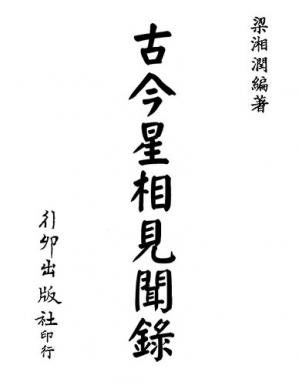 梁湘潤編著
古今星相見聞錄
行卯出版社印行